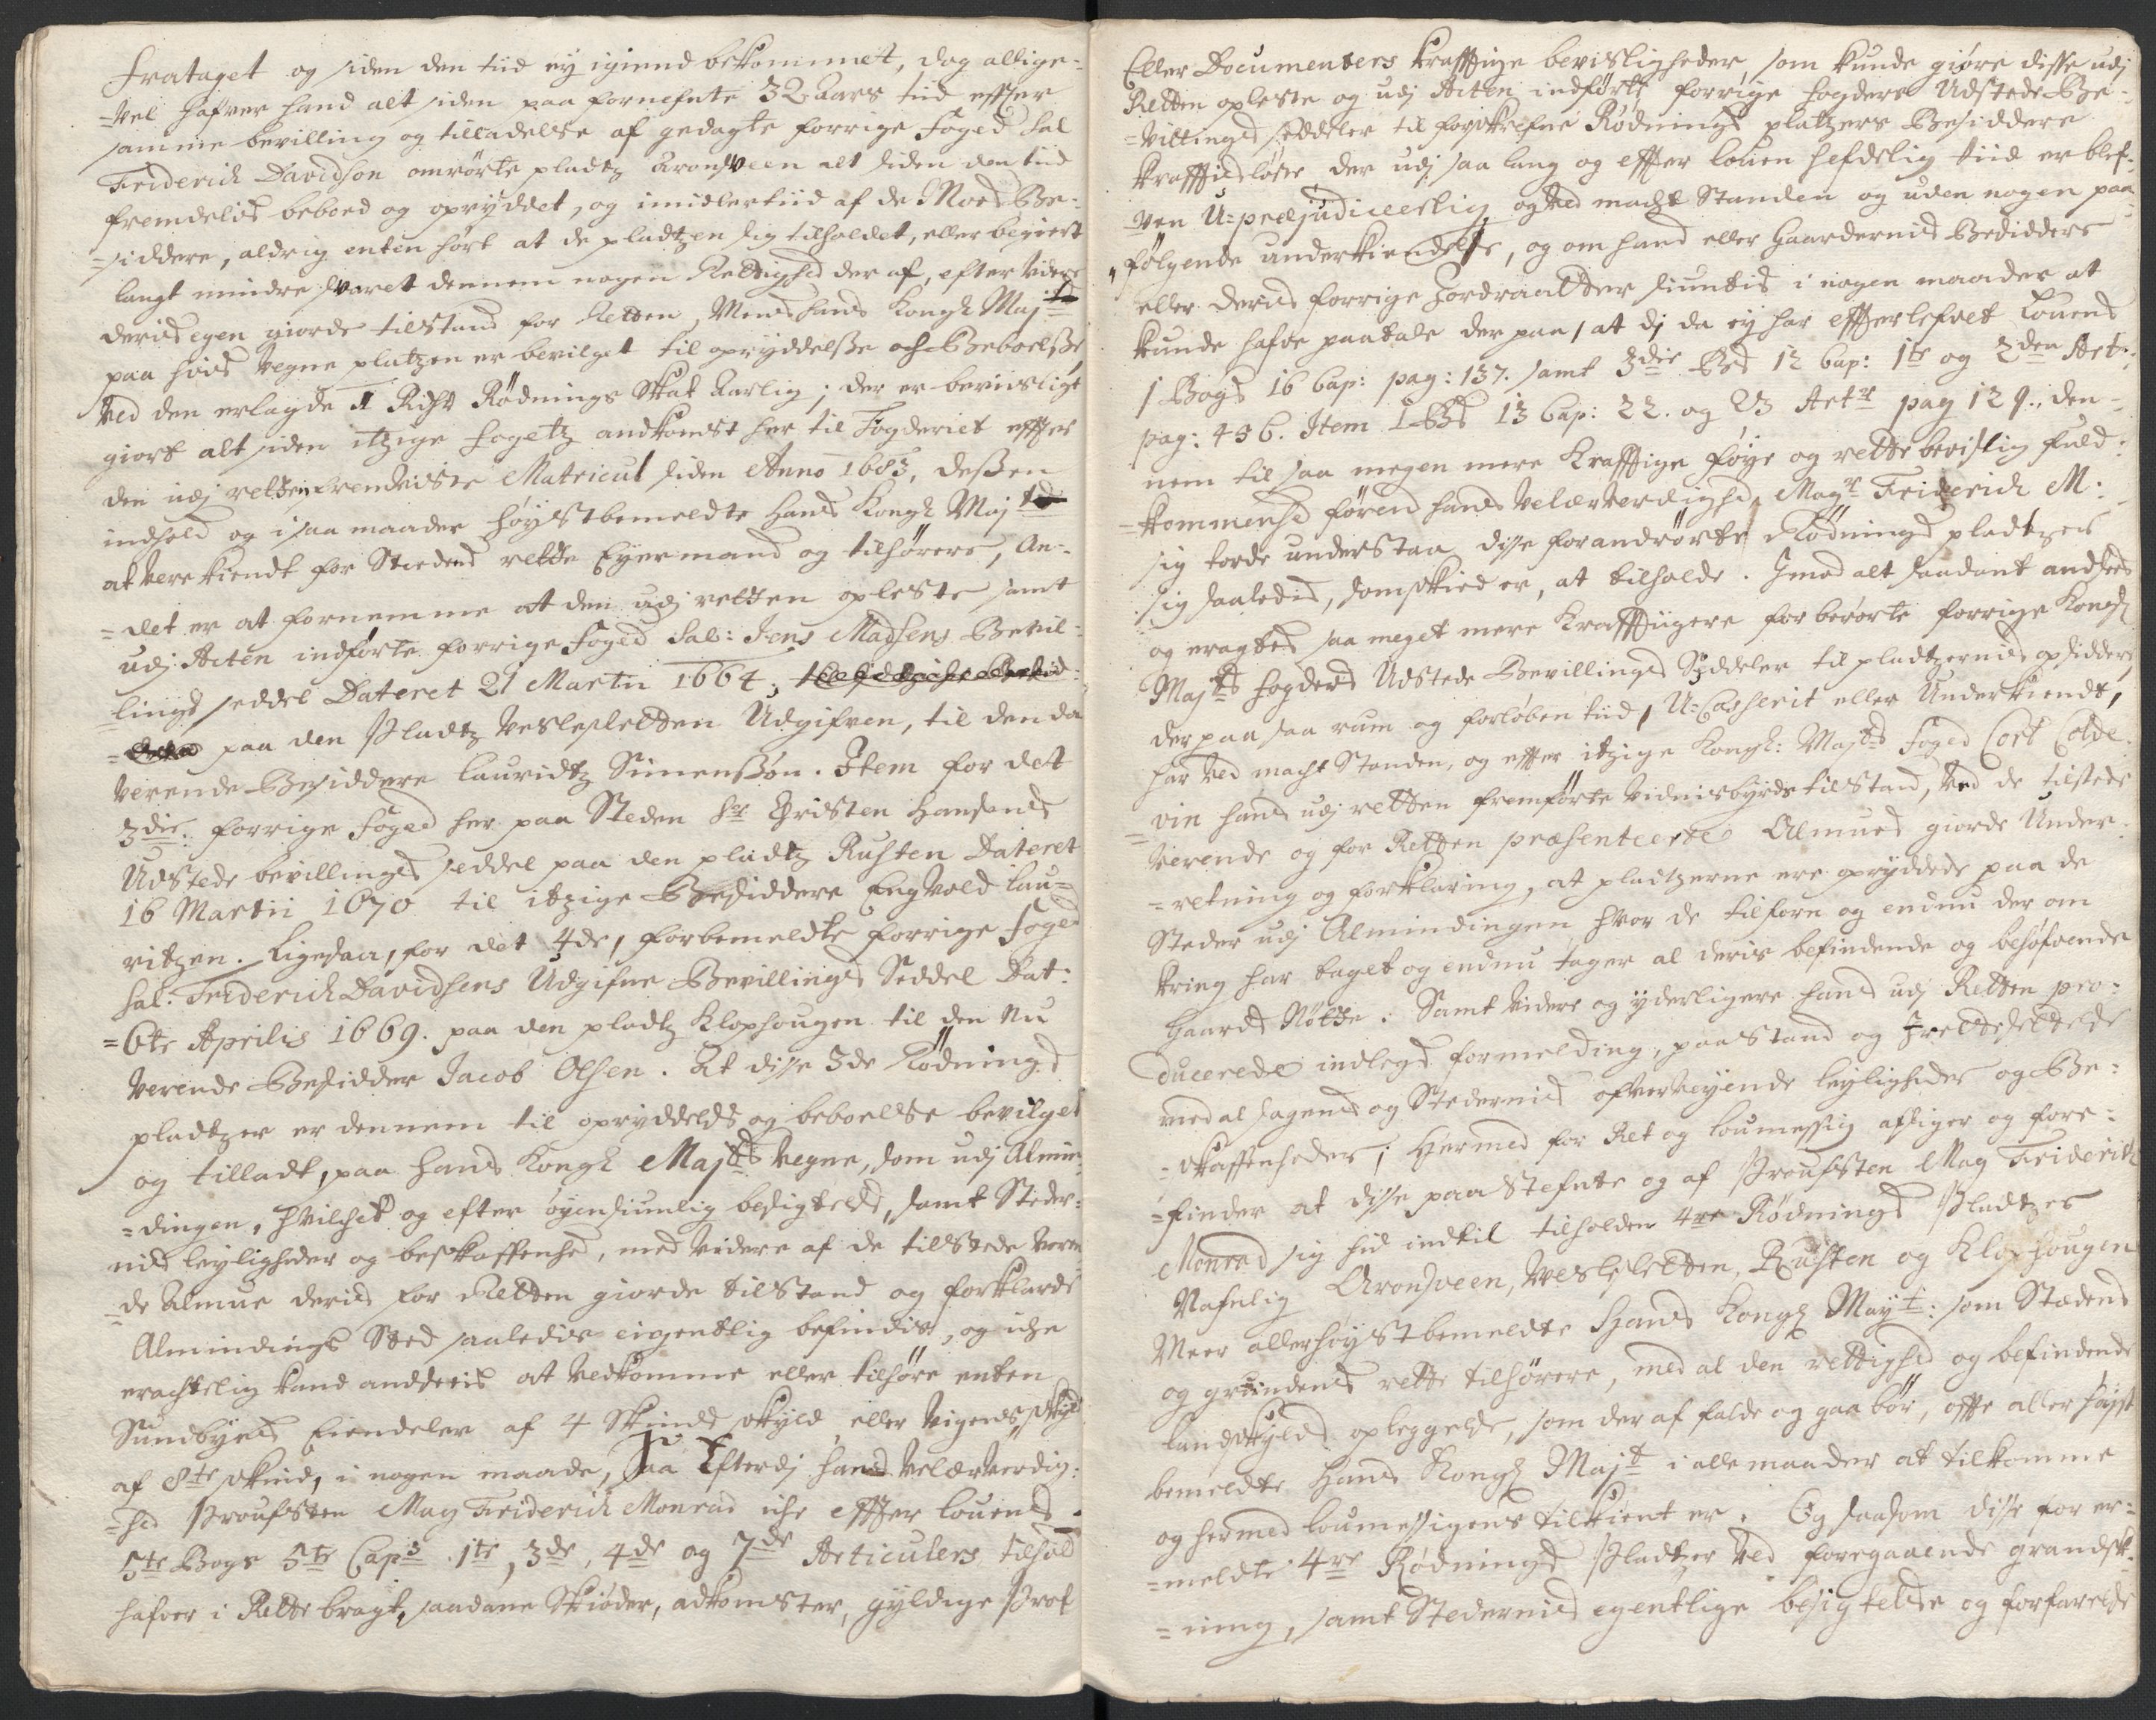 frataget og siden den tiid ey igiend bekommet, dog allige-
=vel hafver hand alt siden paa fornefnte 32 Aars tiid effter
samme bevilling og tilladelse af gedagte forrige Foged Sal
Friderich Davidson omrörte pladtz Aronsveen alt siden den tiid
fremdelis beboed og opryddet, og imidlertiid af de Moes Be-
=siddere, aldrig enten hört at de pladtzen sig tilholdet, eller begiert
langt mindre svaret dennem nogen Rettighed der af, efter videre
deris egen giorde tilstand for Retten, Mens hans Kongl Majts
paa hvis vegne platzen er bevilget til opryddelsse och Beboelsse
ved den erlagde 1 Rixdr Rødnings Skat Aarlig; der er beviisligt
giort alt siden itzige fogetz andkomst her til Fogderiet effter
den udj retten fremviiste Matricul siden Anno 1683, dessen
indhold og i saa maader høystbemeldte Hans Kongl Majts
at vere kiendt for Stedens rette Eyermand og tilhörere, An-
=det er at fornemme at den udj retten opleste samt
udj Acten indførte forrige Foged Sal: Jens Madsens Bevil-
lings seddel Dateret 21 Martii 1664,
paa den Pladtz Veslesletten Udgifven, til den da
verende Besiddere Lauridtz Simenssøn. Item for det
3die. forrige Foged her paa Steden Sr Christen Hansens
Udstede bevillings seddel paa den pladtz Rusten Dateret
16 Martii 1670 til itzige Besiddere Engvold Lau-
ritzen. Ligesaa, for det 4de, forbemeldte forrige foged
Sal. Friderich Davidsens Udgifne Bevillings Seddel Dat:
=6te Aprilis 1669. paa den pladtz Klophougen til den Nu
verende Besidder Jacob Olsen. At disse 3de Rödnings
pladtzer er dennem til opryddelse og beboelse bevilget
og tilladt, paa hans Kongl Majts vegne, som udj Almin-
=dingen, hvilchet og efter øyensiunlig besigtelse, samt Steder-
nis leyligheder og beskaffenhed, med videre af de tilstede veren-
=de Almue deris for Retten giorde tilstand og forklarde
Almindings Sted saaledis eigentlig befindis, og iche
erachtelig kand andderis at vedkomme eller tilhöre enten
Sundbyens Eiendeler af 4 Skinds skyld eller Vigens skyld
af 8te skind, i nogen maade, Saa Efterdj hans velærverdig-
=hed Proufsten Mag Friderich Monrad iche effter louens
5te Bogs 5te Caps 1te, 3de, 4de og 7de Articulers tilhold
hafver i Rette bragt, saadane Skiøder, adkomster, gyldige Prot
Eller Documenters krafftige bevisligheder, som kunde giøre disse udj
Retten opleste og udj Acten indførte forrige fogders Udstede Be-
=villings seddeler til forskrefne Rödnings platzers Besiddere
krafftesløse, der udj saa lang og effter louen hefdelig tiid er blef-
=ven U-præjudiceerlig og ved macht Standen og uden nogen paa
følgende underkiendelse, og om hand eller Gaardernis Besiddere
eller deris forrige Fordraatter siuntis i nogen maader at
kunde hafve paatale der paa, at dj da ey har effterlefvet Louens
1 Bogs 16 Cap: pag: 137. samt 3die B: 12 Cap: 1te og 2den Art:
pag: 456. Item 1 B: 13 Cap: 22. og 23 Artr pag 129., den-
nem til saa megen mere krafftige föye og rette bevislig fuld-
=kommenhed förend hans Velærverdighed Magr Friderich M:
sig torde understaa disse forandrörte Rödnings pladtzer
sig saaledis, som skied er, at tilholde. Imod alt saadant andsees
og eragtes saa meget mere Krafftigere forberørte forrige Kongl
Majts fogders Udstede Bevillings Seddeler til pladtzernis opsiddere
der paa saa rum og forløben tiid, U-Casserit eller Underkiendt,
har ved macht Standen, og effter itzige Kongl: Majts foged Cort Colde-
=vin hans udj retten fremförte vidnisbyrds tilstand, ved de tilstede
verende og for Retten præsenteerte Almues giorde Under-
=retning og forklaring, at pladtzerne ere opryddede paa de
Steder udj Almindingen hvor de tilforn og endnu der om
kring har taget og endnu tager al deris befindende og behøfvende
Gaards Nøtte. Samt videre og yderligere hans udj Retten pro-
ducerede indlegs formelding, paastand og Irettesettelse
med al sagens og Stedernis ofverveyende leyligheder og Be-
=skaffenheder; Hermed for Ret og loumessig afsiger og fore-
=finder at disse paa Stefnte og af Proufsten Mag Friderich
Monrad sig hid indtil tilholden 4re Rødnings Pladtzer
Nafnlig Aronsveen, Vesleslettten, Rusten og Klophougen
Meer allerhøystbemeldte Hans Kongl Mayt: som Stædens
og grundens rette tilhørere, med al den rettighed og befindende
landskylds opleggelse, som der af falde og gaa bör, offte allerhøyst
bemeldte Hans Kongl Majt i alle maader at tilkomme
og hermed loumessigens tilkient er. Og saasom disse for er-
=meldte 4re Rødnings Pladtzer ved foregaaende grandsk-
=ning, samt Stedernis egentlige besigtelse og forfarelse